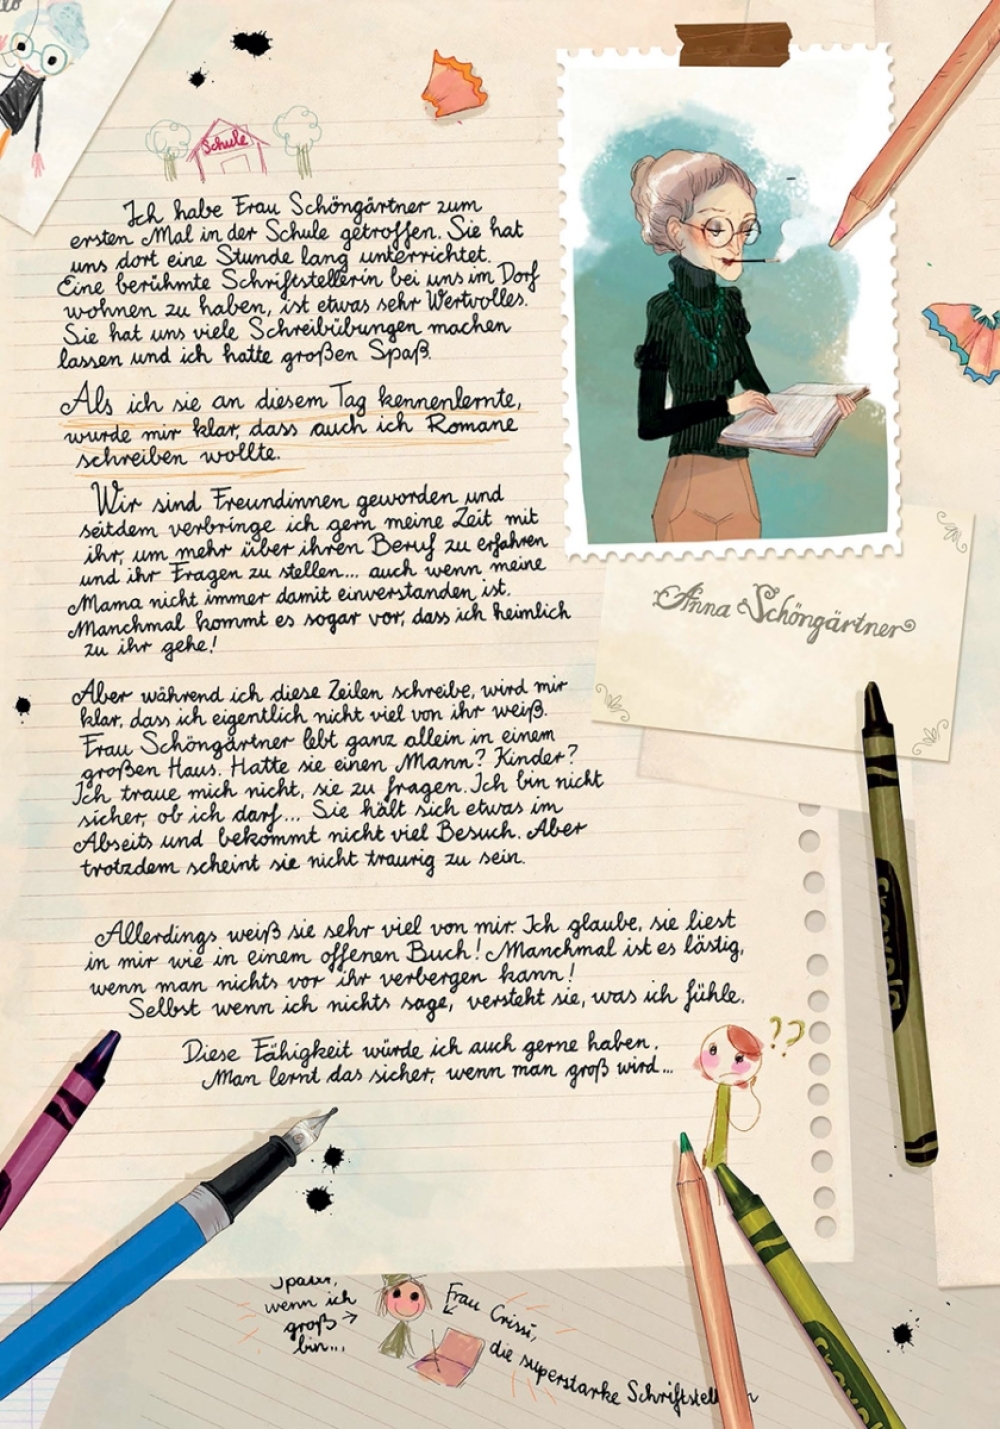 Schule
Ich habe Frau Schöngärtner zum
ersten Mal in der Schule getroffen. Sie hat
uns dort eine Stunde lang unterrichtet.
Eine berühmte Schriftstellerin bei uns im Dorf
wohnen zu haben, ist etwas sehr Wertvolles.
Sie hat uns viele Schreibübungen machen
lassen und ich hatte großen Spaß.
Als ich sie an diesem Tag kennenlernte,
wurde mir klar, dass auch ich Romane
schreiben wollte.
Wir sind Freundinnen geworden und
seitdem verbringe ich gern meine Zeit mit
ihr, um mehr über ihren Beruf zu erfahren
und ihr Fragen zu stellen... auch wenn meine
Mama nicht immer damit einverstanden ist.
Manchmal kommt es sogar vor, dass ich heimlich
zu ihr gehe!
Anna Schöngärtner
Aber während ich diese Zeilen schreibe, wird mir
klar, dass ich eigentlich nicht viel von ihr weiß.
Frau Schöngärtner lebt ganz allein in einem
großen Haus. Hatte sie einen Mann? Kinder?
Ich traue mich nicht, sie zu fragen. Ich bin nicht
sicher, ob ich darf... Sie hält sich etwas im
Abseits und bekommt nicht viel Besuch. Aber
trotzdem scheint sie nicht traurig zu sein.
Allerdings weiß sie sehr viel von mir. Ich glaube, sie liest
in mir wie in einem offenen Buch! Manchmal ist es lästig,
wenn man nichts vor ihr verbergen kann!
Selbst wenn ich nichts sage, versteht sie, was ich fühle.
Diese Fähigkeit würde ich auch gerne haben.
Man lernt das sicher, wenn man groß wird...
??
wenn ich
groß →
bin...
Frau Crissi,
die superstarke